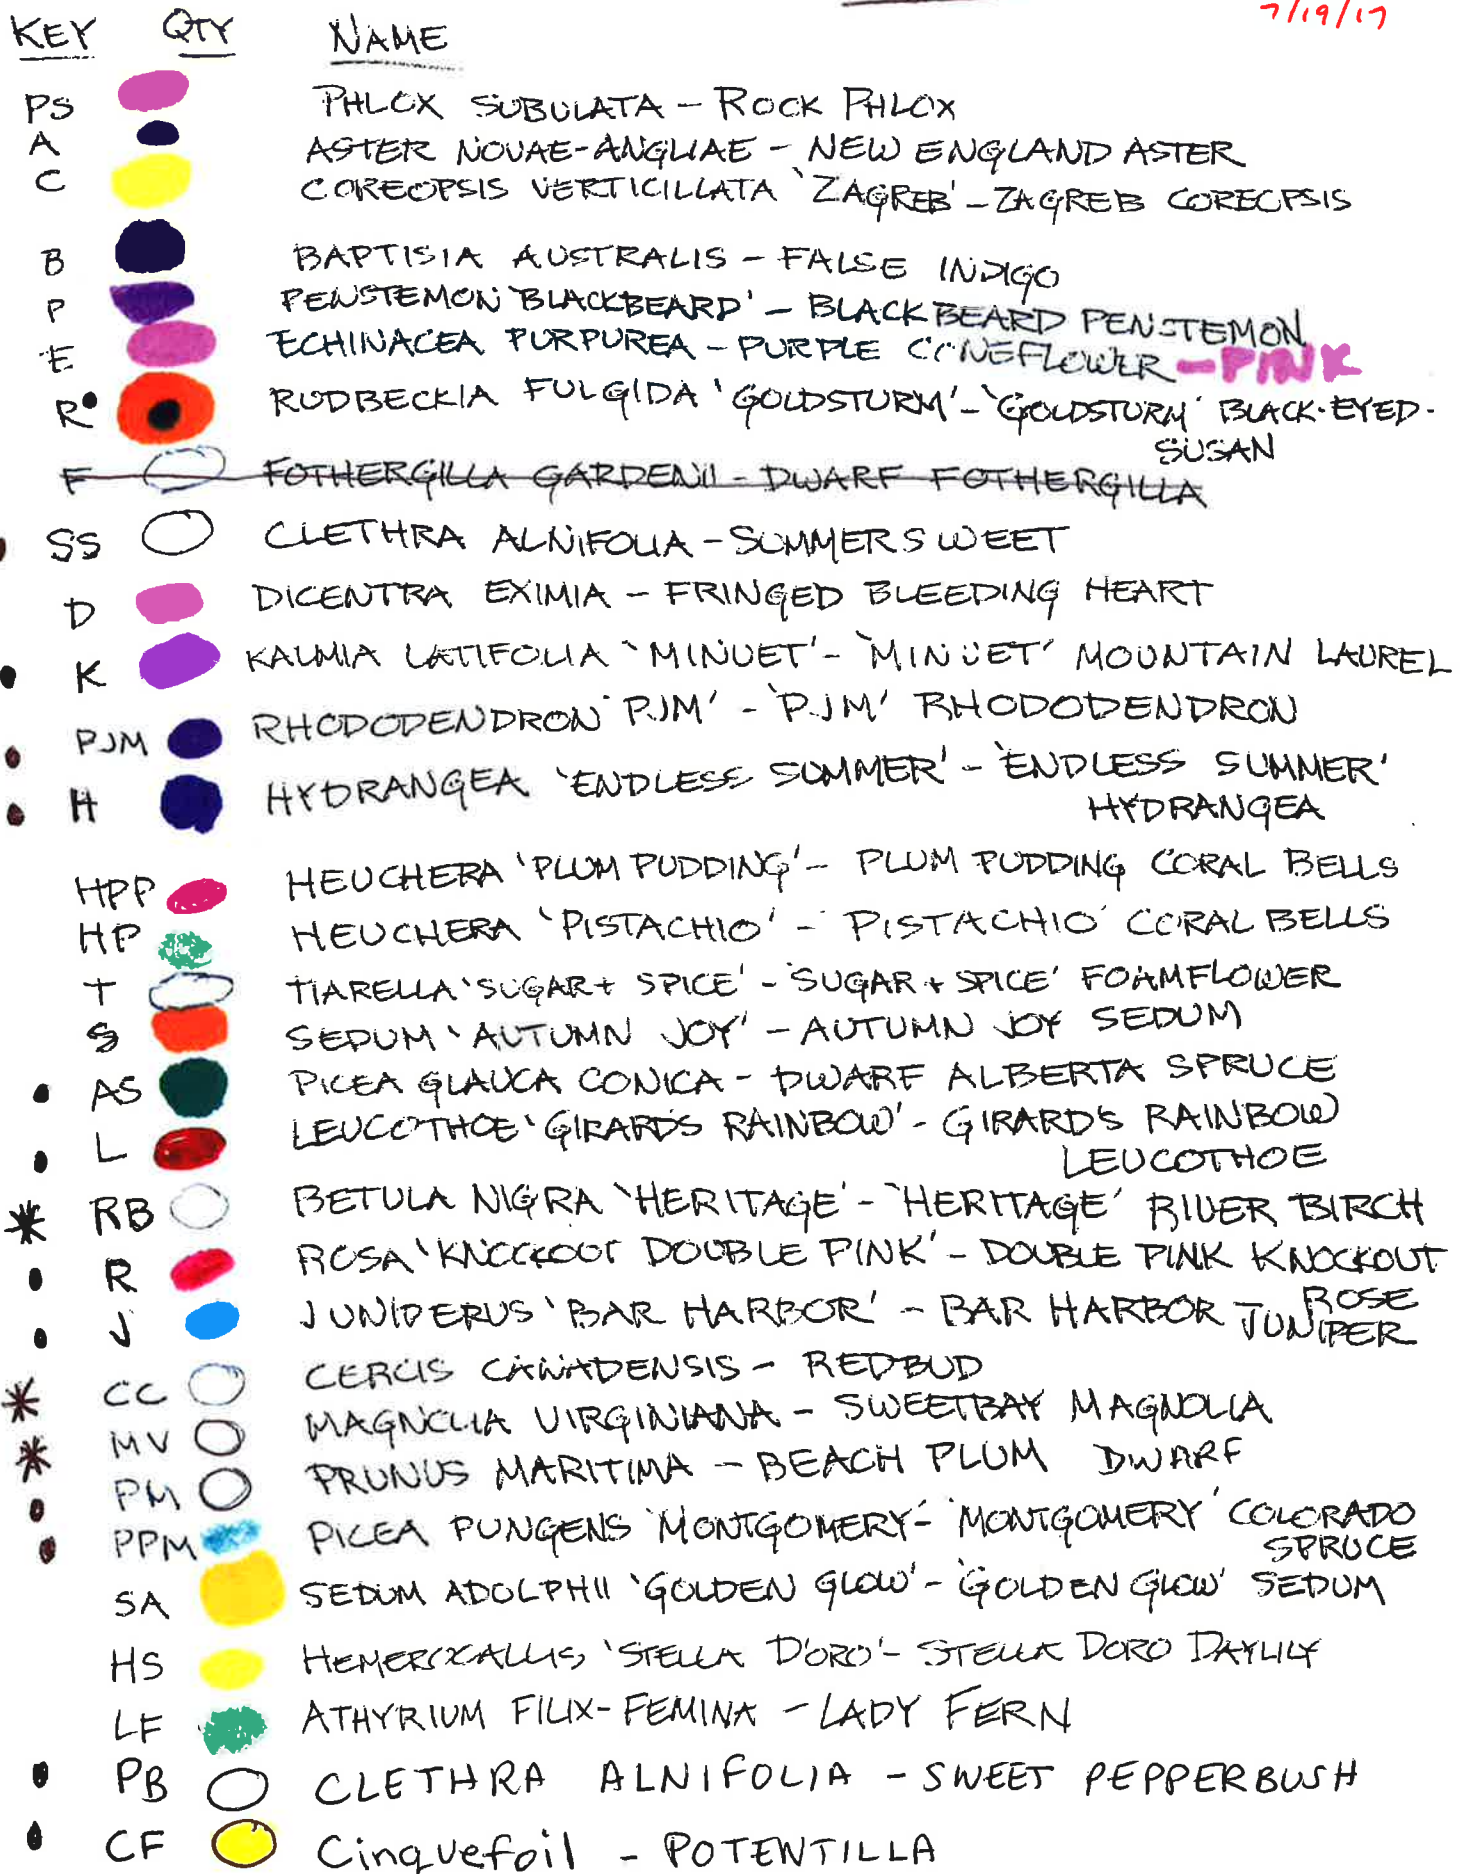 7/19/17
KEY QTY NAME
PS PHLOX SUBULATA - ROCK PHLOX
A ASTER NOVAE-ANGLIAE - NEW ENGLAND ASTER
C COREOPSIS VERTICILLATA 'ZAGREB' - ZAGREB COREOPSIS
B BAPTISIA AUSTRALIS - FALSE INDIGO
P PENSTEMON 'BLACKBEARD' - BLACKBEARD PENSTEMON
E ECHINACEA PURPUREA - PURPLE CONEFLOWER - PINK
R• RUDBECKIA FULGIDA 'GOLDSTURM' - 'GOLDSTURM' BLACK-EYED-
SUSAN
F FOTHERGILLA GARDENII - DWARF FOTHERGILLA
• SS CLETHRA ALNIFOLIA - SUMMERSWEET
D DICENTRA EXIMIA - FRINGED BLEEDING HEART
• K KALMIA LATIFOLIA 'MINUET' - 'MINUET' MOUNTAIN LAUREL
• PJM RHODODENDRON 'PJM' - 'PJM' RHODODENDRON
• H HYDRANGEA 'ENDLESS SUMMER' - 'ENDLESS SUMMER'
HYDRANGEA
HPP HEUCHERA 'PLUM PUDDING' - PLUM PUDDING CORAL BELLS
HP HEUCHERA 'PISTACHIO' - 'PISTACHIO' CORAL BELLS
T TIARELLA 'SUGAR + SPICE' - 'SUGAR + SPICE' FOAMFLOWER
S SEDUM 'AUTUMN JOY' - AUTUMN JOY SEDUM
• AS PICEA GLAUCA CONICA - DWARF ALBERTA SPRUCE
• L LEUCOTHOE 'GIRARD'S RAINBOW' - GIRARD'S RAINBOW
LEUCOTHOE
* RB BETULA NIGRA 'HERITAGE' - 'HERITAGE' RIVER BIRCH
• R ROSA 'KNOCKOUT DOUBLE PINK' - DOUBLE PINK KNOCKOUT
ROSE
• J JUNIPERUS 'BAR HARBOR' - BAR HARBOR JUNIPER
* CC CERCIS CANADENSIS - REDBUD
* MV MAGNOLIA VIRGINIANA - SWEETBAY MAGNOLIA
• PM PRUNUS MARITIMA - BEACH PLUM DWARF
• PPM PICEA PUNGENS 'MONTGOMERY' - 'MONTGOMERY' COLORADO
SPRUCE
SA SEDUM ADOLPHII 'GOLDEN GLOW' - 'GOLDEN GLOW' SEDUM
HS HEMEROCALLIS 'STELLA D'ORO' - STELLA DORO DAYLILY
LF ATHYRIUM FILIX-FEMINA - LADY FERN
• PB CLETHRA ALNIFOLIA - SWEET PEPPERBUSH
• CF Cinquefoil - POTENTILLA